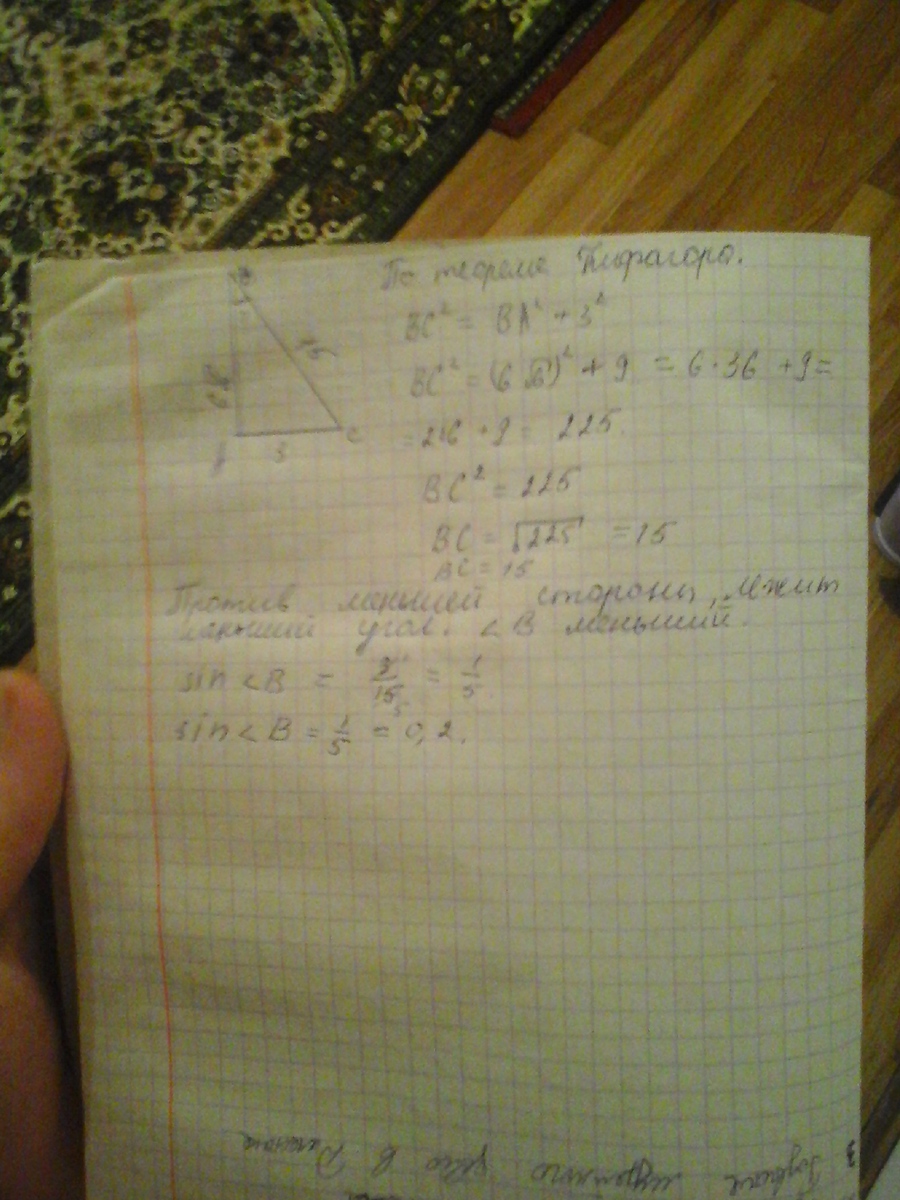 По теореме Пифагора.
BC² = BA² + 3²
BC² = (6√6)² + 9 = 6·36 + 9 =
= 216 + 9 = 225.
BC² = 225
BC = √225 = 15
BC = 15
B
15
6√6
A 3 C
Против меньшей стороны, лежит
меньший угол. ∠B меньший.
sin ∠B = 3/15 = 1/5.
sin ∠B = 1/5 = 0,2.
3
в